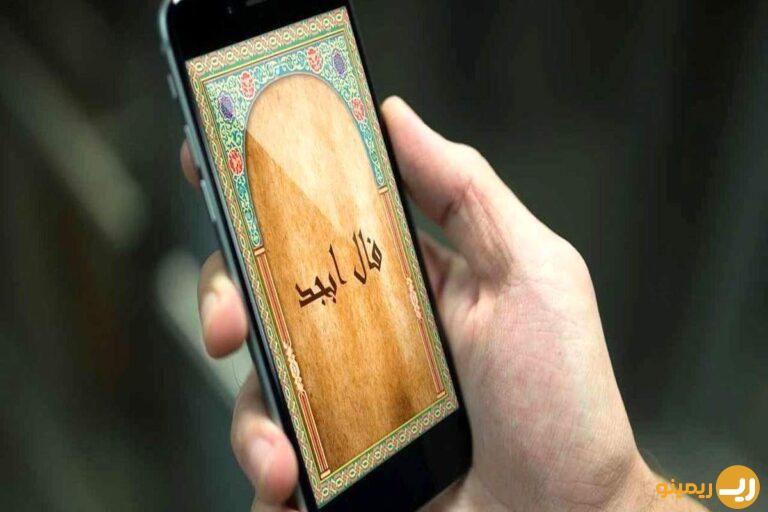 فال ابجد
ریمینو